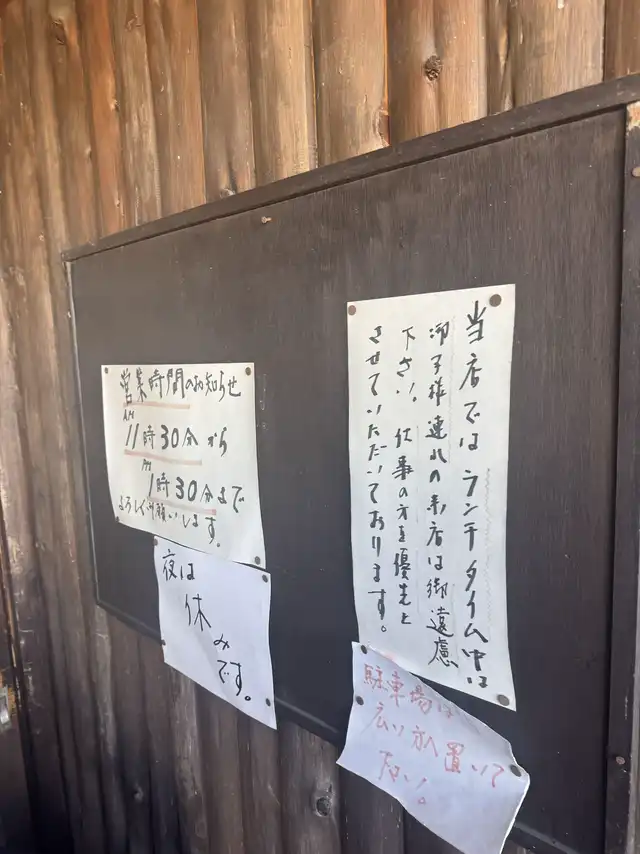 営業時間のお知らせ
AM
11時30分から
PM
1時30分まで
よろしくお願いします。
夜は
休み
です。
当店では ランチタイム中は
御子様連れの来店は御遠慮
下さい。仕事の方を優先と
させていただいております。
駐車場は、
広い
置いて
下さい。